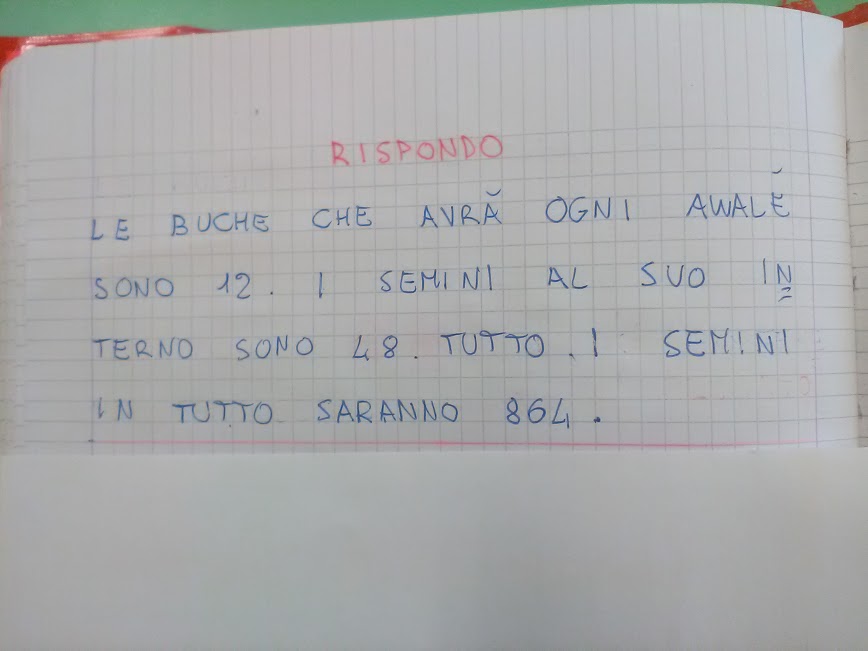 RISPONDO
LE BUCHE CHE AVRĂ OGNI AWALĔ
SONO 12. I SEMINI AL SUO IN=
TERNO SONO 48. TUTTO. I SEMINI
IN TUTTO SARANNO 864.